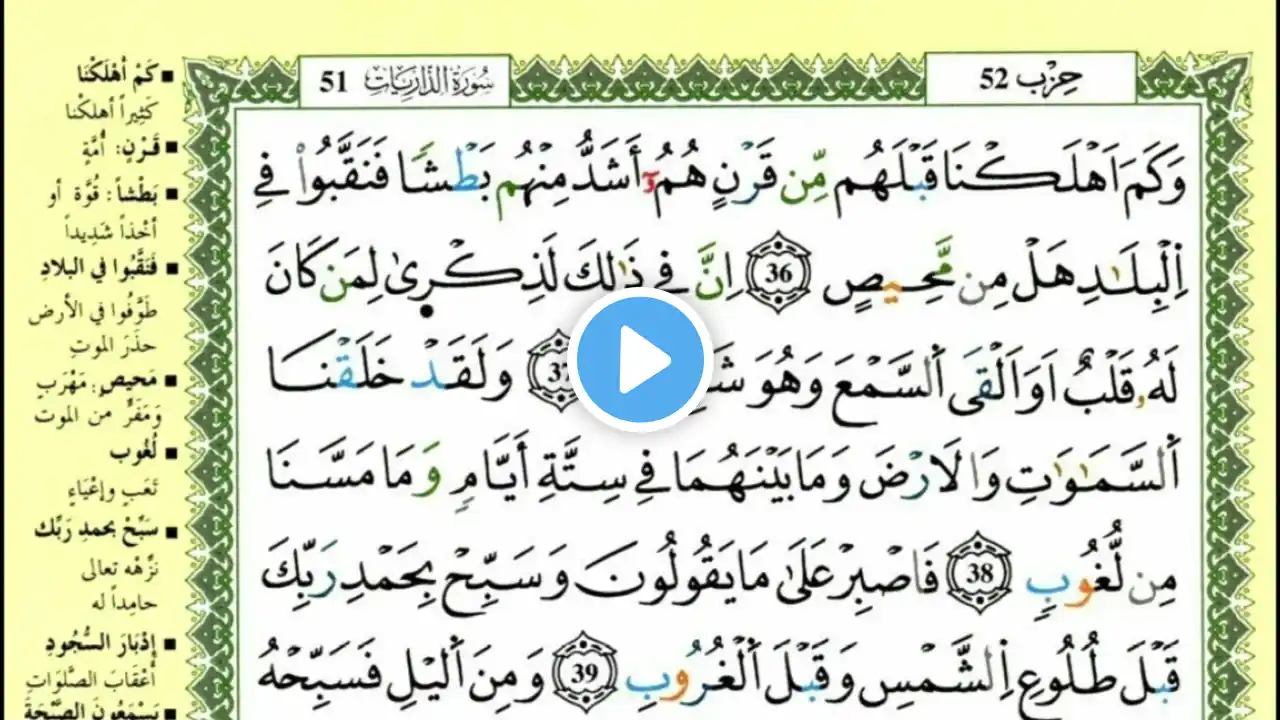 حِزْب 52
سُورَةُ الذَّارِيَات 51
وَكَمَ اَهْلَكْنَا قَبْلَهُم مِّن قَرْنٍ هُمُۥٓ أَشَدُّ مِنْهُم بَطْشاً فَنَقَّبُواْ فِے
اِلْبِلَٰدِ هَلْ مِن مَّحِيصٍ 36 اِنَّ فِے ذَٰلِكَ لَذِكْر۪ىٰ لِمَن كَانَ
لَهُۥ قَلْبٌ اَوَ اَلْقَى اَلسَّمْعَ وَهُوَ وَلَقَدْ خَلَقْنَا
اَلسَّمَٰوَٰتِ وَالَارْضَ وَمَا بَيْنَهُمَا فِے سِتَّةِ أَيَّامٖ وَمَا مَسَّنَا
مِن لُّغُوبٖ 38 فَاصْبِرْ عَلَىٰ مَا يَقُولُونَ وَسَبِّحْ بِحَمْدِ رَبِّكَ
قَبْلَ طُلُوعِ اِلشَّمْسِ وَقَبْلَ اَلْغُرُوبِ 39 وَمِنَ اَلَيْلِ فَسَبِّحْهُ
▪ كَمْ أهْلَكْنَا
كثيراً أهلكنا
▪ قَرْنٍ: أُمَّةٍ
▪ بَطْشاً: قُوَّة أو
أخْذاً شَدِيداً
▪ فَنَقَّبُوا في البلادِ
طَوَّفُوا في الأرض
حذَرَ الموتِ
▪ مَحيصٍ: مَهْرَبٍ
وَمَفَرٍّ من الموت
▪ لُغُوب
تَعَبٍ وإعْيَاءٍ
▪ سَبِّحْ بحمدِ رَبِّك
نَزِّهْه تعالى
حامِداً له
▪ إدْبَارَ السُّجُودِ
أعْقَابَ الصَّلَوَاتِ
▪ يَسْمَعُونَ الصَّيْحَةَ